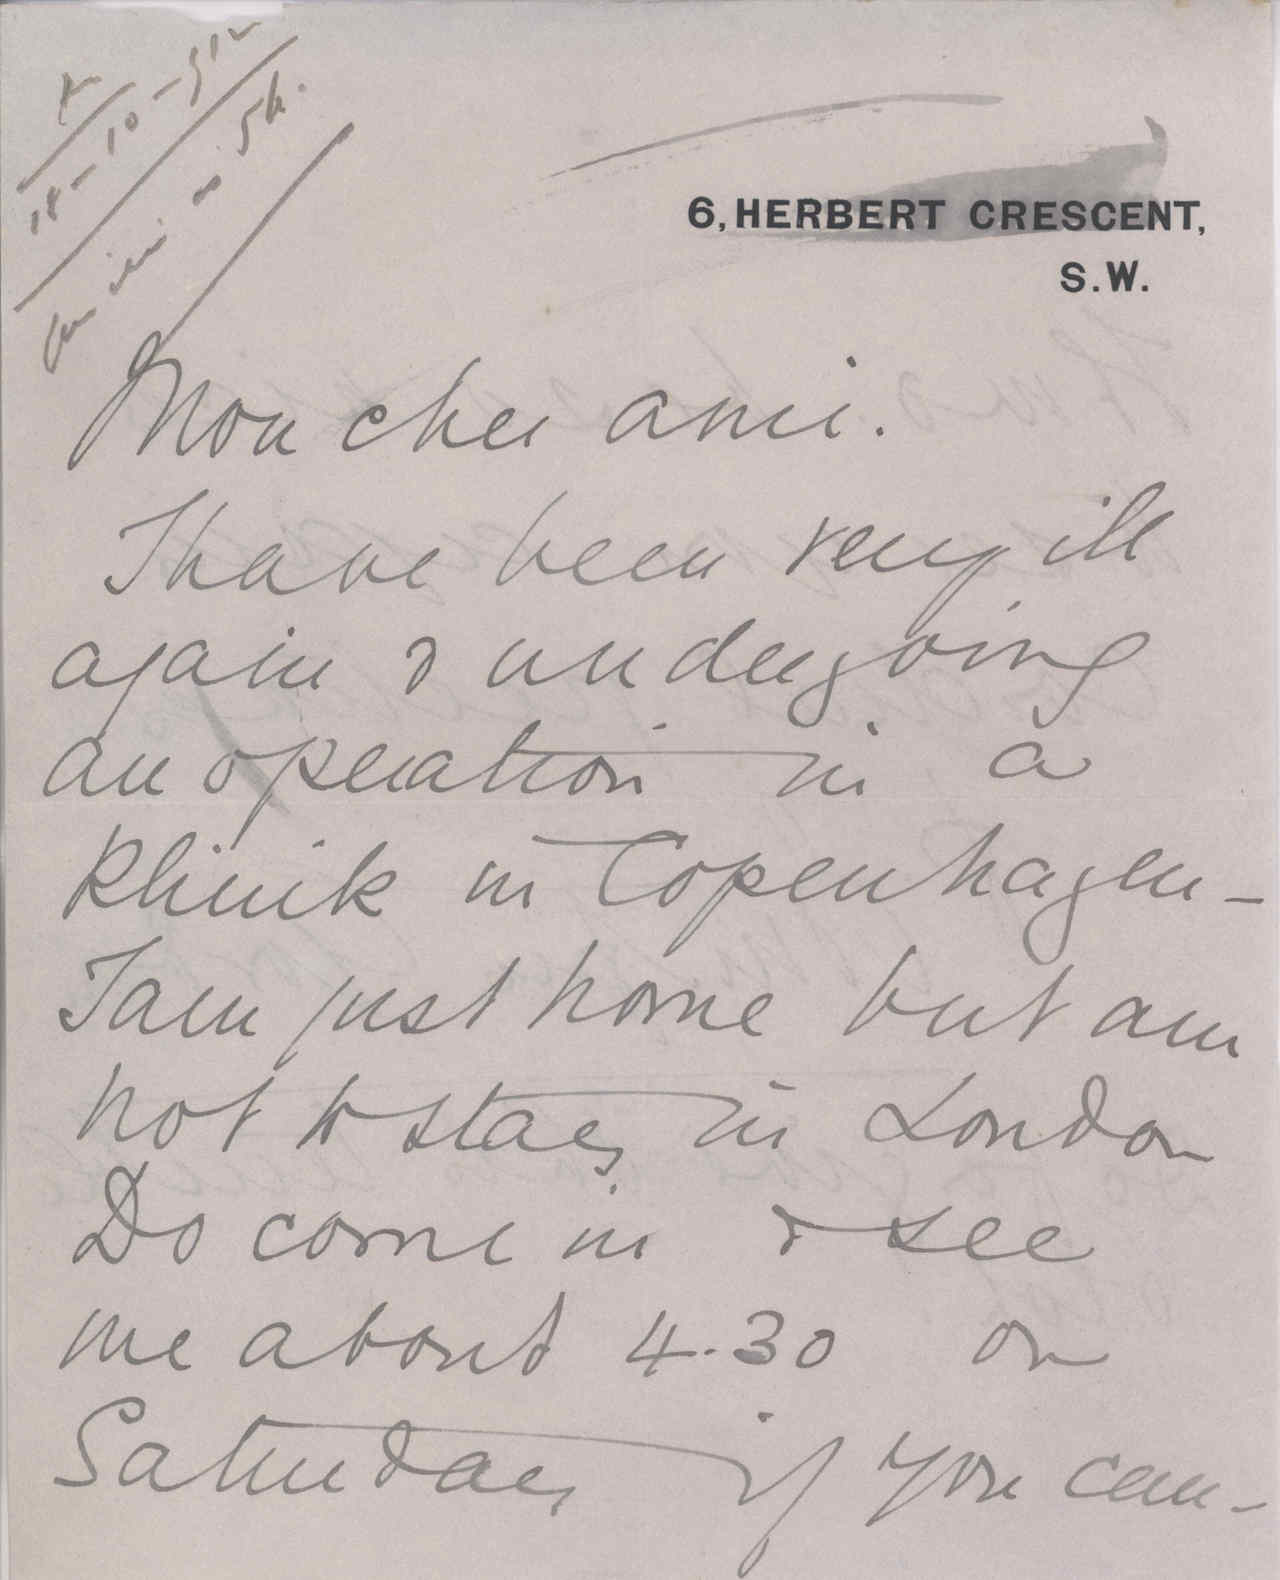 18-10-
6, HERBERT CRESCENT,
S.W.
Mon cher ami.
I have been very ill
again & undergoing
an operation in a
Klinik in Copenhagen -
I am just home but am
not to stay in London
Do come in & see
me about 4.30 on
Saturday if you can -